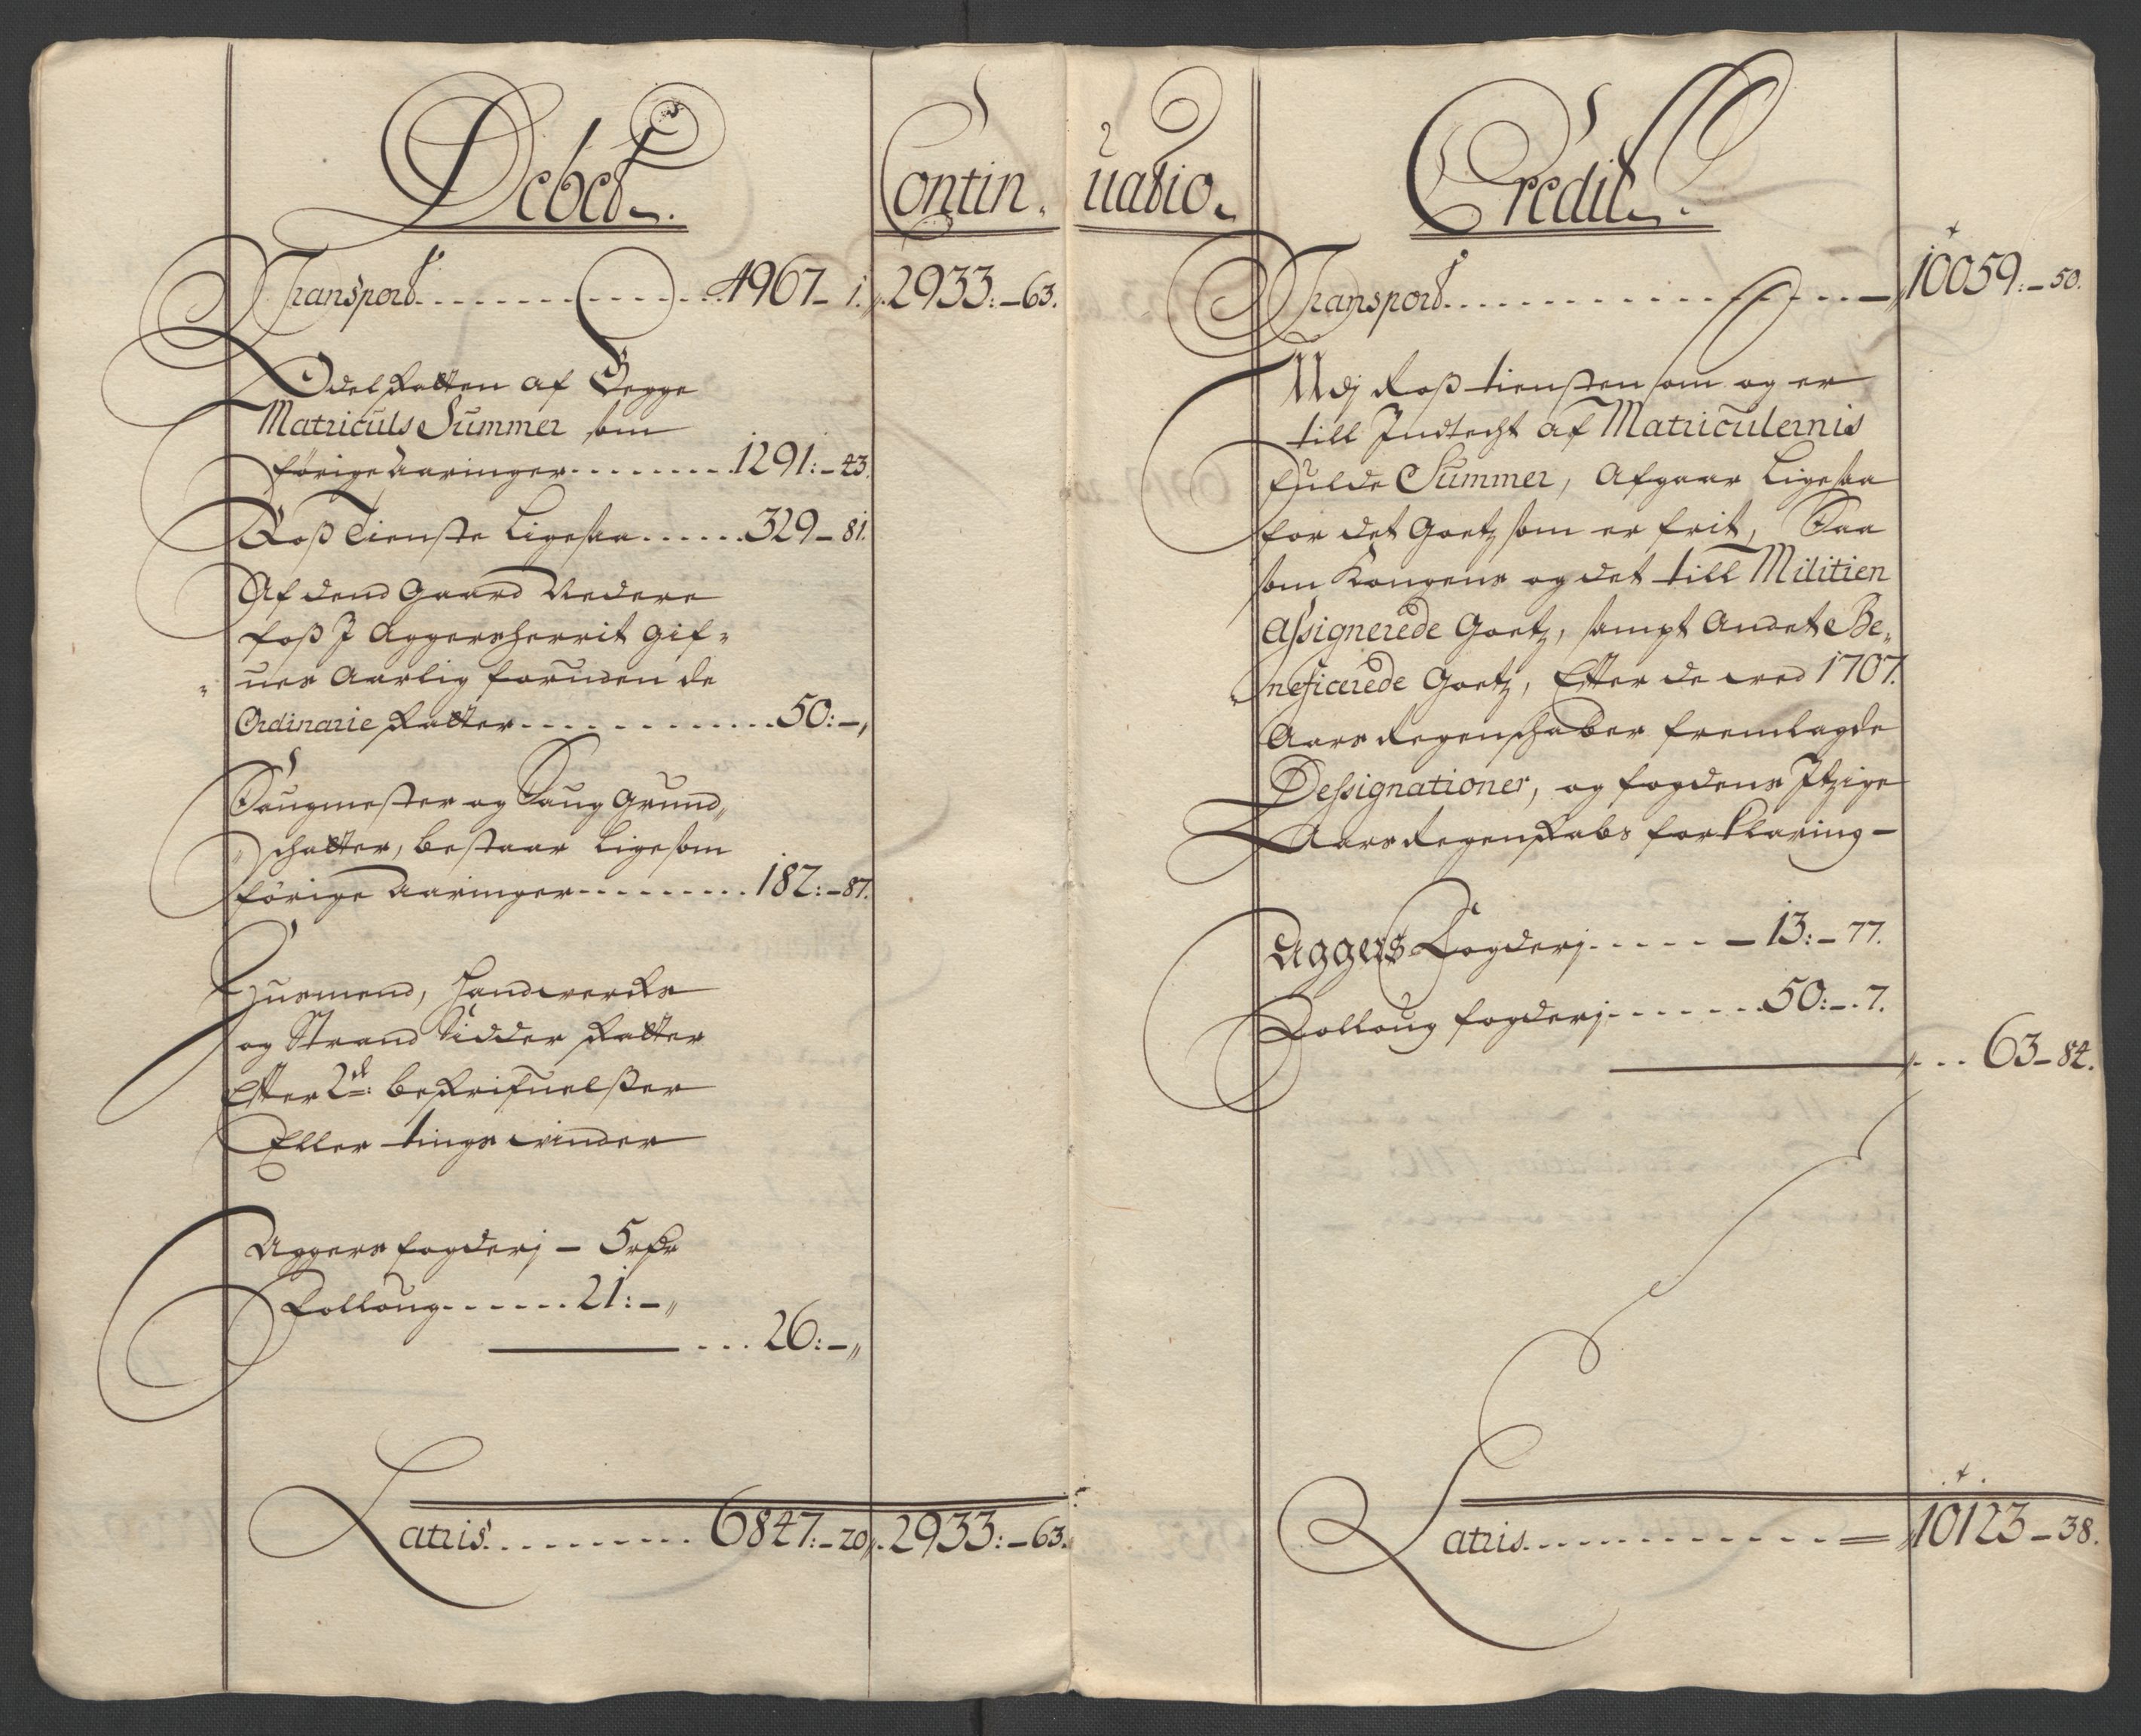 Debet
Transport 4967 - 1.
Odel Skatten af Begge
Matriculs Summer som
förige Aaringer 1291:- 43.
Roß Tienste Ligesaa 329 - 81.
Af dend Gaard Nedere
foß J Aggersherrit gif-
ues Aarlig foruden de
Ordinarie Skatter 50:-,
Saugmester og Saug Grund
schatter, bestaar ligesom
förige Aaringer 182:- 87.
Husmend, Handwercks
og Strand Sidder Skatter
Efter beskrifuelßer
Eller tings winder
Aggers fogderj - 5
Folloug 21:- „
26:- „
Latris 6847:- 20
Contin.
2933:- 63.
2933:- 63.
uatio.
Credit
Transport 10059:- 50.
Udj Roß tiensten som og er
till Indtecht af Matriculernis
fulde Summer, Afgaar Ligesaa
for det Goetz som er frit, Saa
som Kongens og det till Militien
Assignerede Goetz, sampt Andet Be-
neficerede Goetz, Efter de wed 1707.
Aars Regenschaber fremlagde
Dessignationer, og fogdens Itzige
Aars Regenskabs forklaring -
Aggers Fogderj 13:- 77.
Folloug fogderj 50:- 7.
63 - 84.
Latris 10123 - 38.